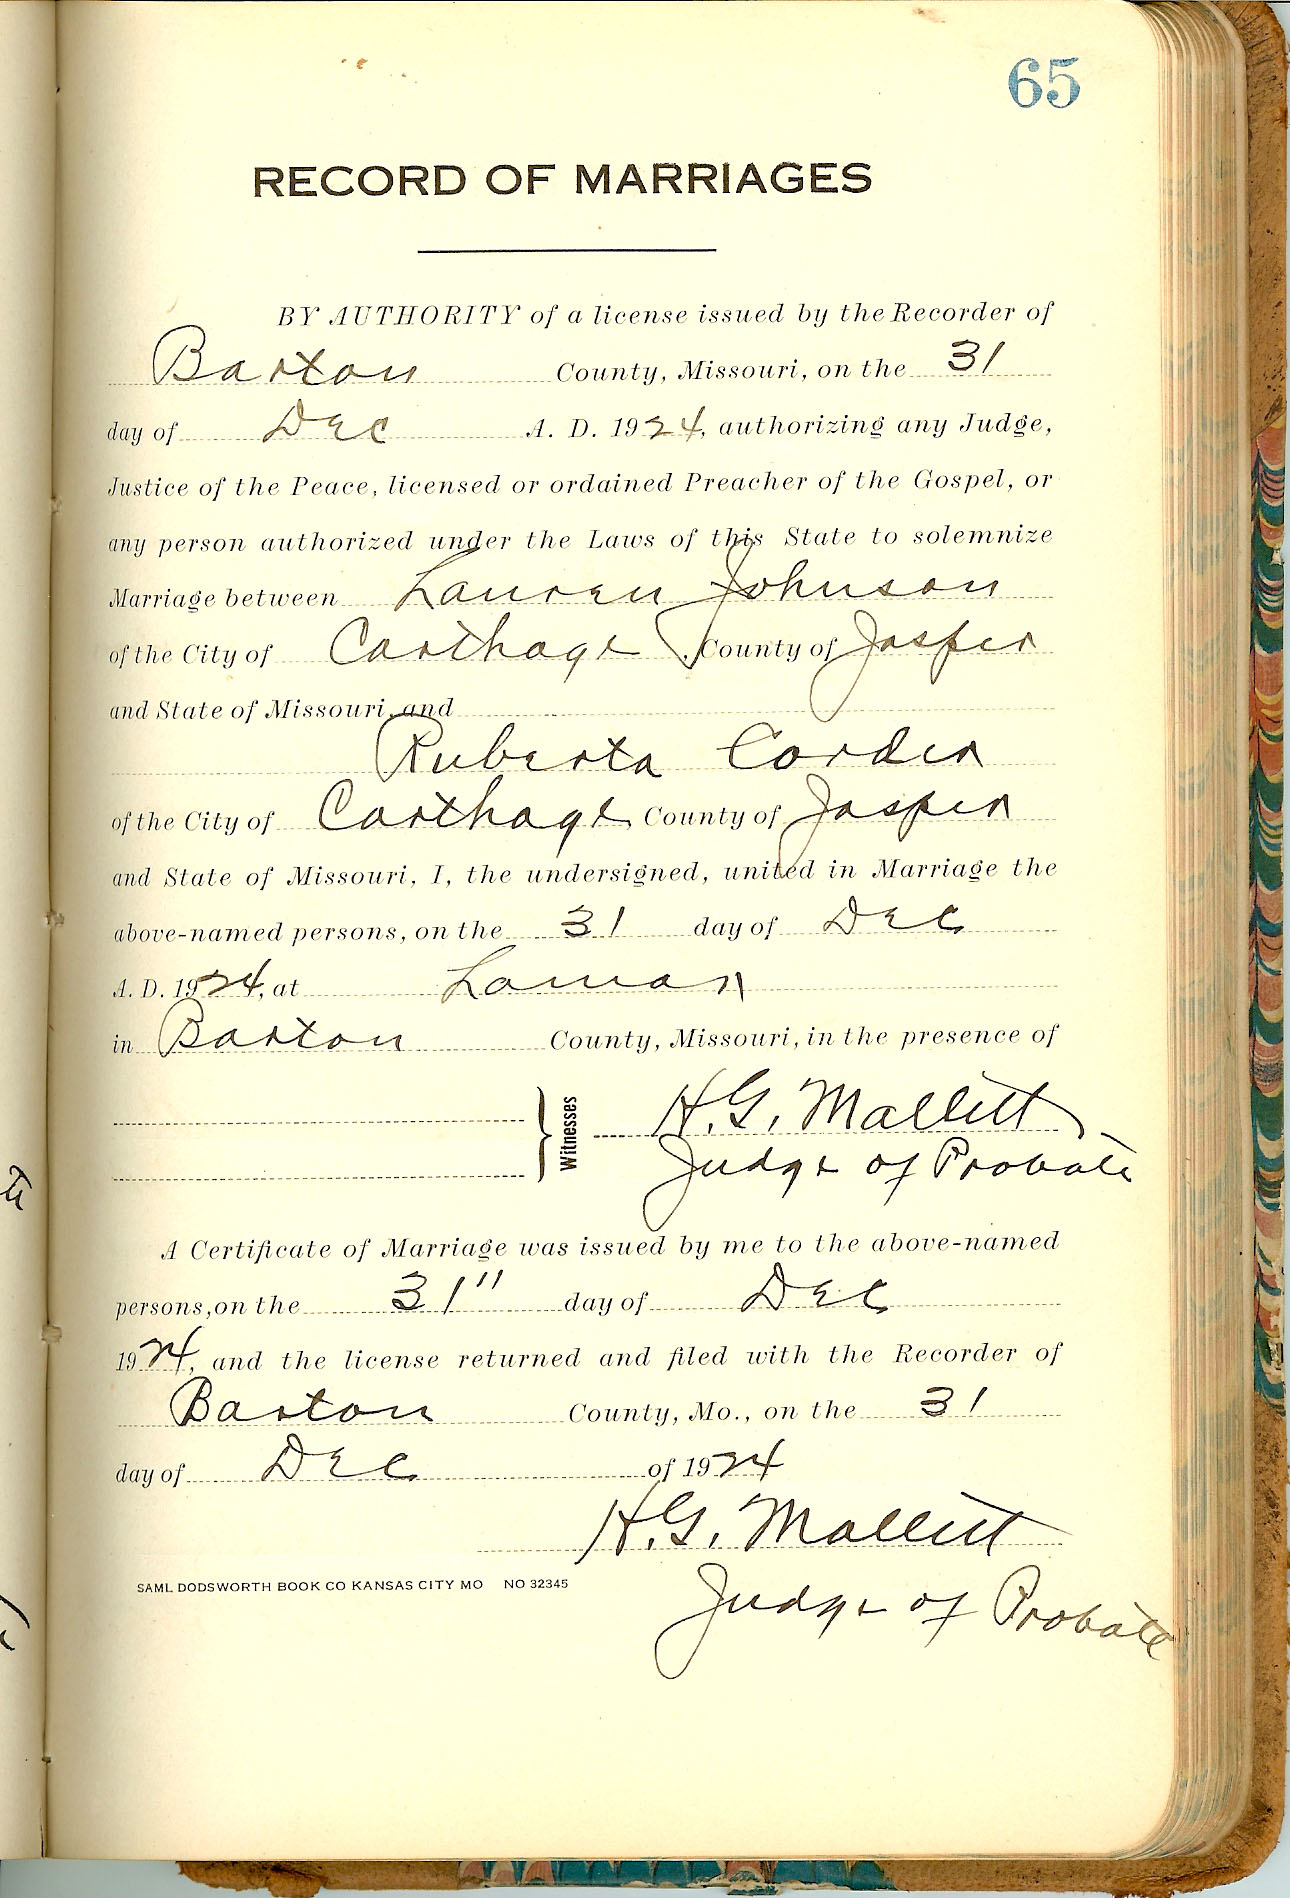 65
RECORD OF MARRIAGES
BY AUTHORITY of a license issued by the Recorder of
Barton County, Missouri, on the 31
day of Dec A. D. 1924, authorizing any Judge,
Justice of the Peace, licensed or ordained Preacher of the Gospel, or
any person authorized under the Laws of this State to solemnize
Marriage between Lauren Johnson
of the City of Carthage, County of Jasper
and State of Missouri, and
Ruberta Corder
of the City of Carthage County of Jasper
and State of Missouri, I, the undersigned, united in Marriage the
above-named persons, on the 31 day of Dec
A. D. 1924, at Lamar
in Barton County, Missouri, in the presence of
Witnesses H. G. Mallett
Judge of Probate
A Certificate of Marriage was issued by me to the above-named
persons, on the 31" day of Dec
1924, and the license returned and filed with the Recorder of
Barton County, Mo., on the 31
day of Dec of 1924
H. G. Mallett
SAML DODSWORTH BOOK CO KANSAS CITY MO NO 32345
Judge of Probate